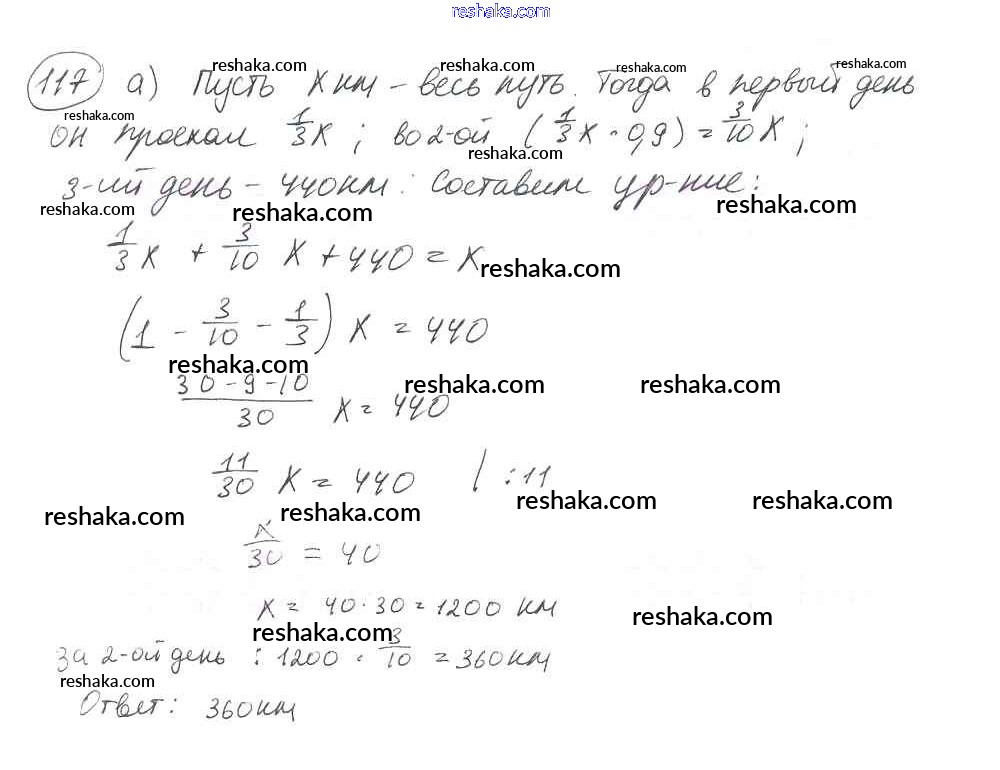 reshaka.com
117 а) Пусть X км – весь путь. Тогда в первый день
он проехал 1/3 X ; во 2-ой (1/3 X · 0,9) = 3/10 X ;
3-ий день – 440 км. Составим ур-ние:
1/3 X + 3/10 X + 440 = X
(1 – 3/10 – 1/3) X = 440
30 – 9 – 10 / 30 X = 440
11/30 X = 440 | : 11
X/30 = 40
X = 40 · 30 = 1200 км
за 2-ой день : 1200 · 3/10 = 360 км
Ответ : 360 км
reshaka.com reshaka.com reshaka.com reshaka.com
reshaka.com
reshaka.com
reshaka.com reshaka.com reshaka.com
reshaka.com
reshaka.com reshaka.com reshaka.com
reshaka.com reshaka.com reshaka.com reshaka.com
reshaka.com reshaka.com
reshaka.com